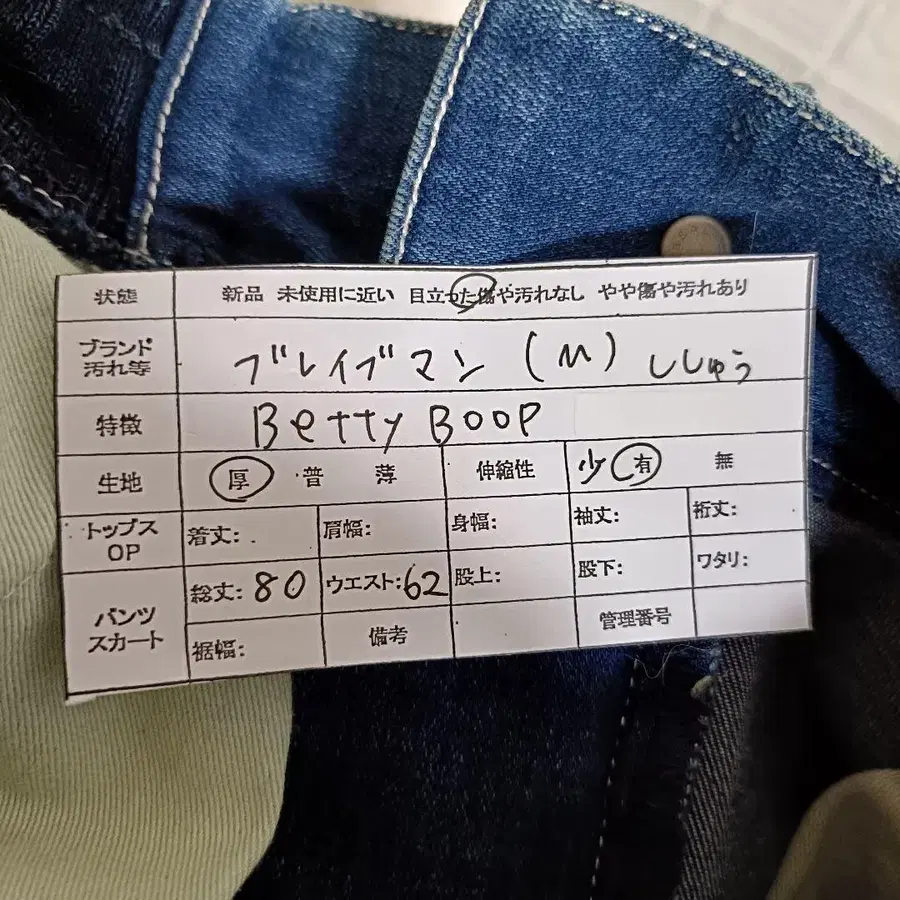 状態 新品 未使用に近い 目立った傷や汚れなし やや傷や汚れあり
ブランド 汚れ等 ブレイブマン (M) ししゅう
特徴 Betty Boop
生地 厚 普 薄 伸縮性 少 有 無
トップス OP 着丈: 肩幅: 身幅: 袖丈: 裄丈:
パンツ スカート 総丈: 80 ウエスト: 62 股上: 股下: ワタリ:
裾幅: 備考 管理番号